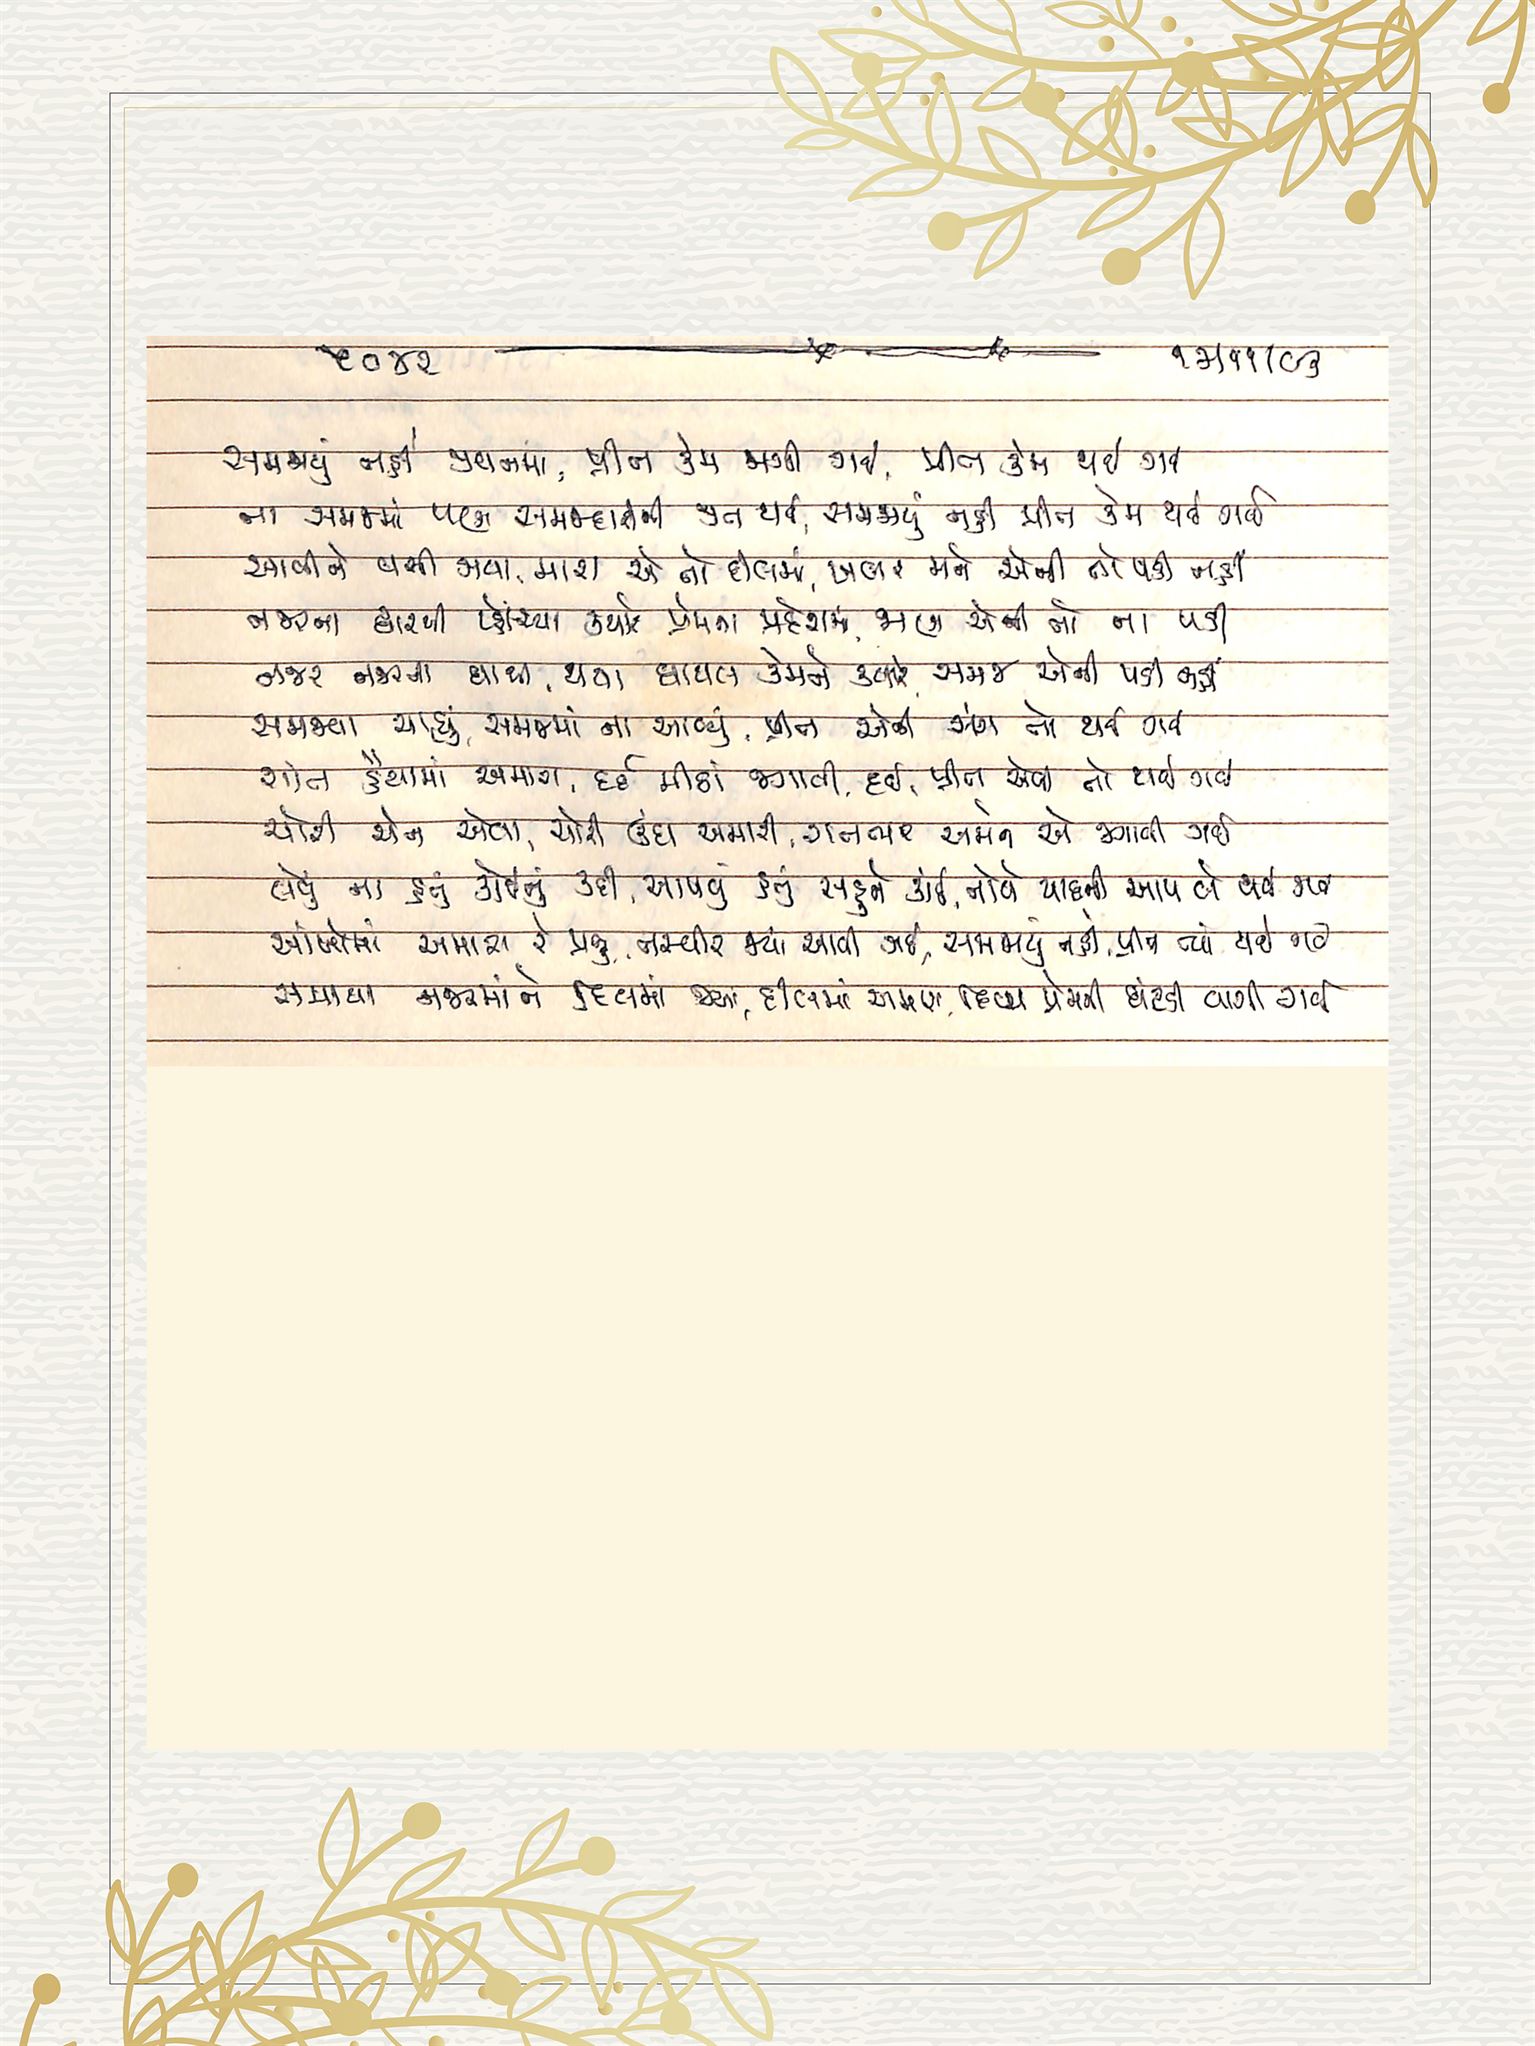 ૬૦૪૨ ૧૩/૧૧/૦૩
સમજાયું નહીં જીવનમાં, પ્રીત કેમ જાગી ગઈ, પ્રીત કેમ થઈ ગઈ
ના સમજમાં પણ સમજદારીની થઈ, સમજાયું નહીં પ્રીત કેમ થઈ ગઈ
આવીને વસી ગયા, મારા એ તો દીલમાં, ખબર મને એની તો પડી નહીં
નજરના દ્વારથી પ્રેમના પ્રદેશમાં, જાણ એની તો ના પડી
નજર નજરના ઘાથી, થયા ઘાયલ કેમને ક્યારે, સમજ એની પડી નહીં
સમજવા ચાહ્યું, સમજમાં ના આવ્યું, પ્રીત એની તો થઈ ગઈ
શાંત હૈયામાં અમારા, દર્દ મીઠાં જગાવી, દઈ, પ્રીત એવી તો થઈ ગઈ
ચોરી ચેન એવા, ચોરી ઉંઘ અમારી, રાતભર અમને એ જગાવી ગઈ
લેવું ના હતું કોઈનું કદી, આપવું હતું સહુને કાંઈ, તોયે યાદની આપ લે થઈ ગઈ
આંખોમાં અમારા રે પ્રભુ, તસ્વીર જ્યાં આવી ગઈ, સમજાયું નહીં, પ્રીત ત્યાં થઈ ગઈ
સમાયા નજરમાં ને દિલમાં જ્યાં, દીલમાં અમારા, દિવ્ય પ્રેમની ઘંટડી વાગી ગઈ